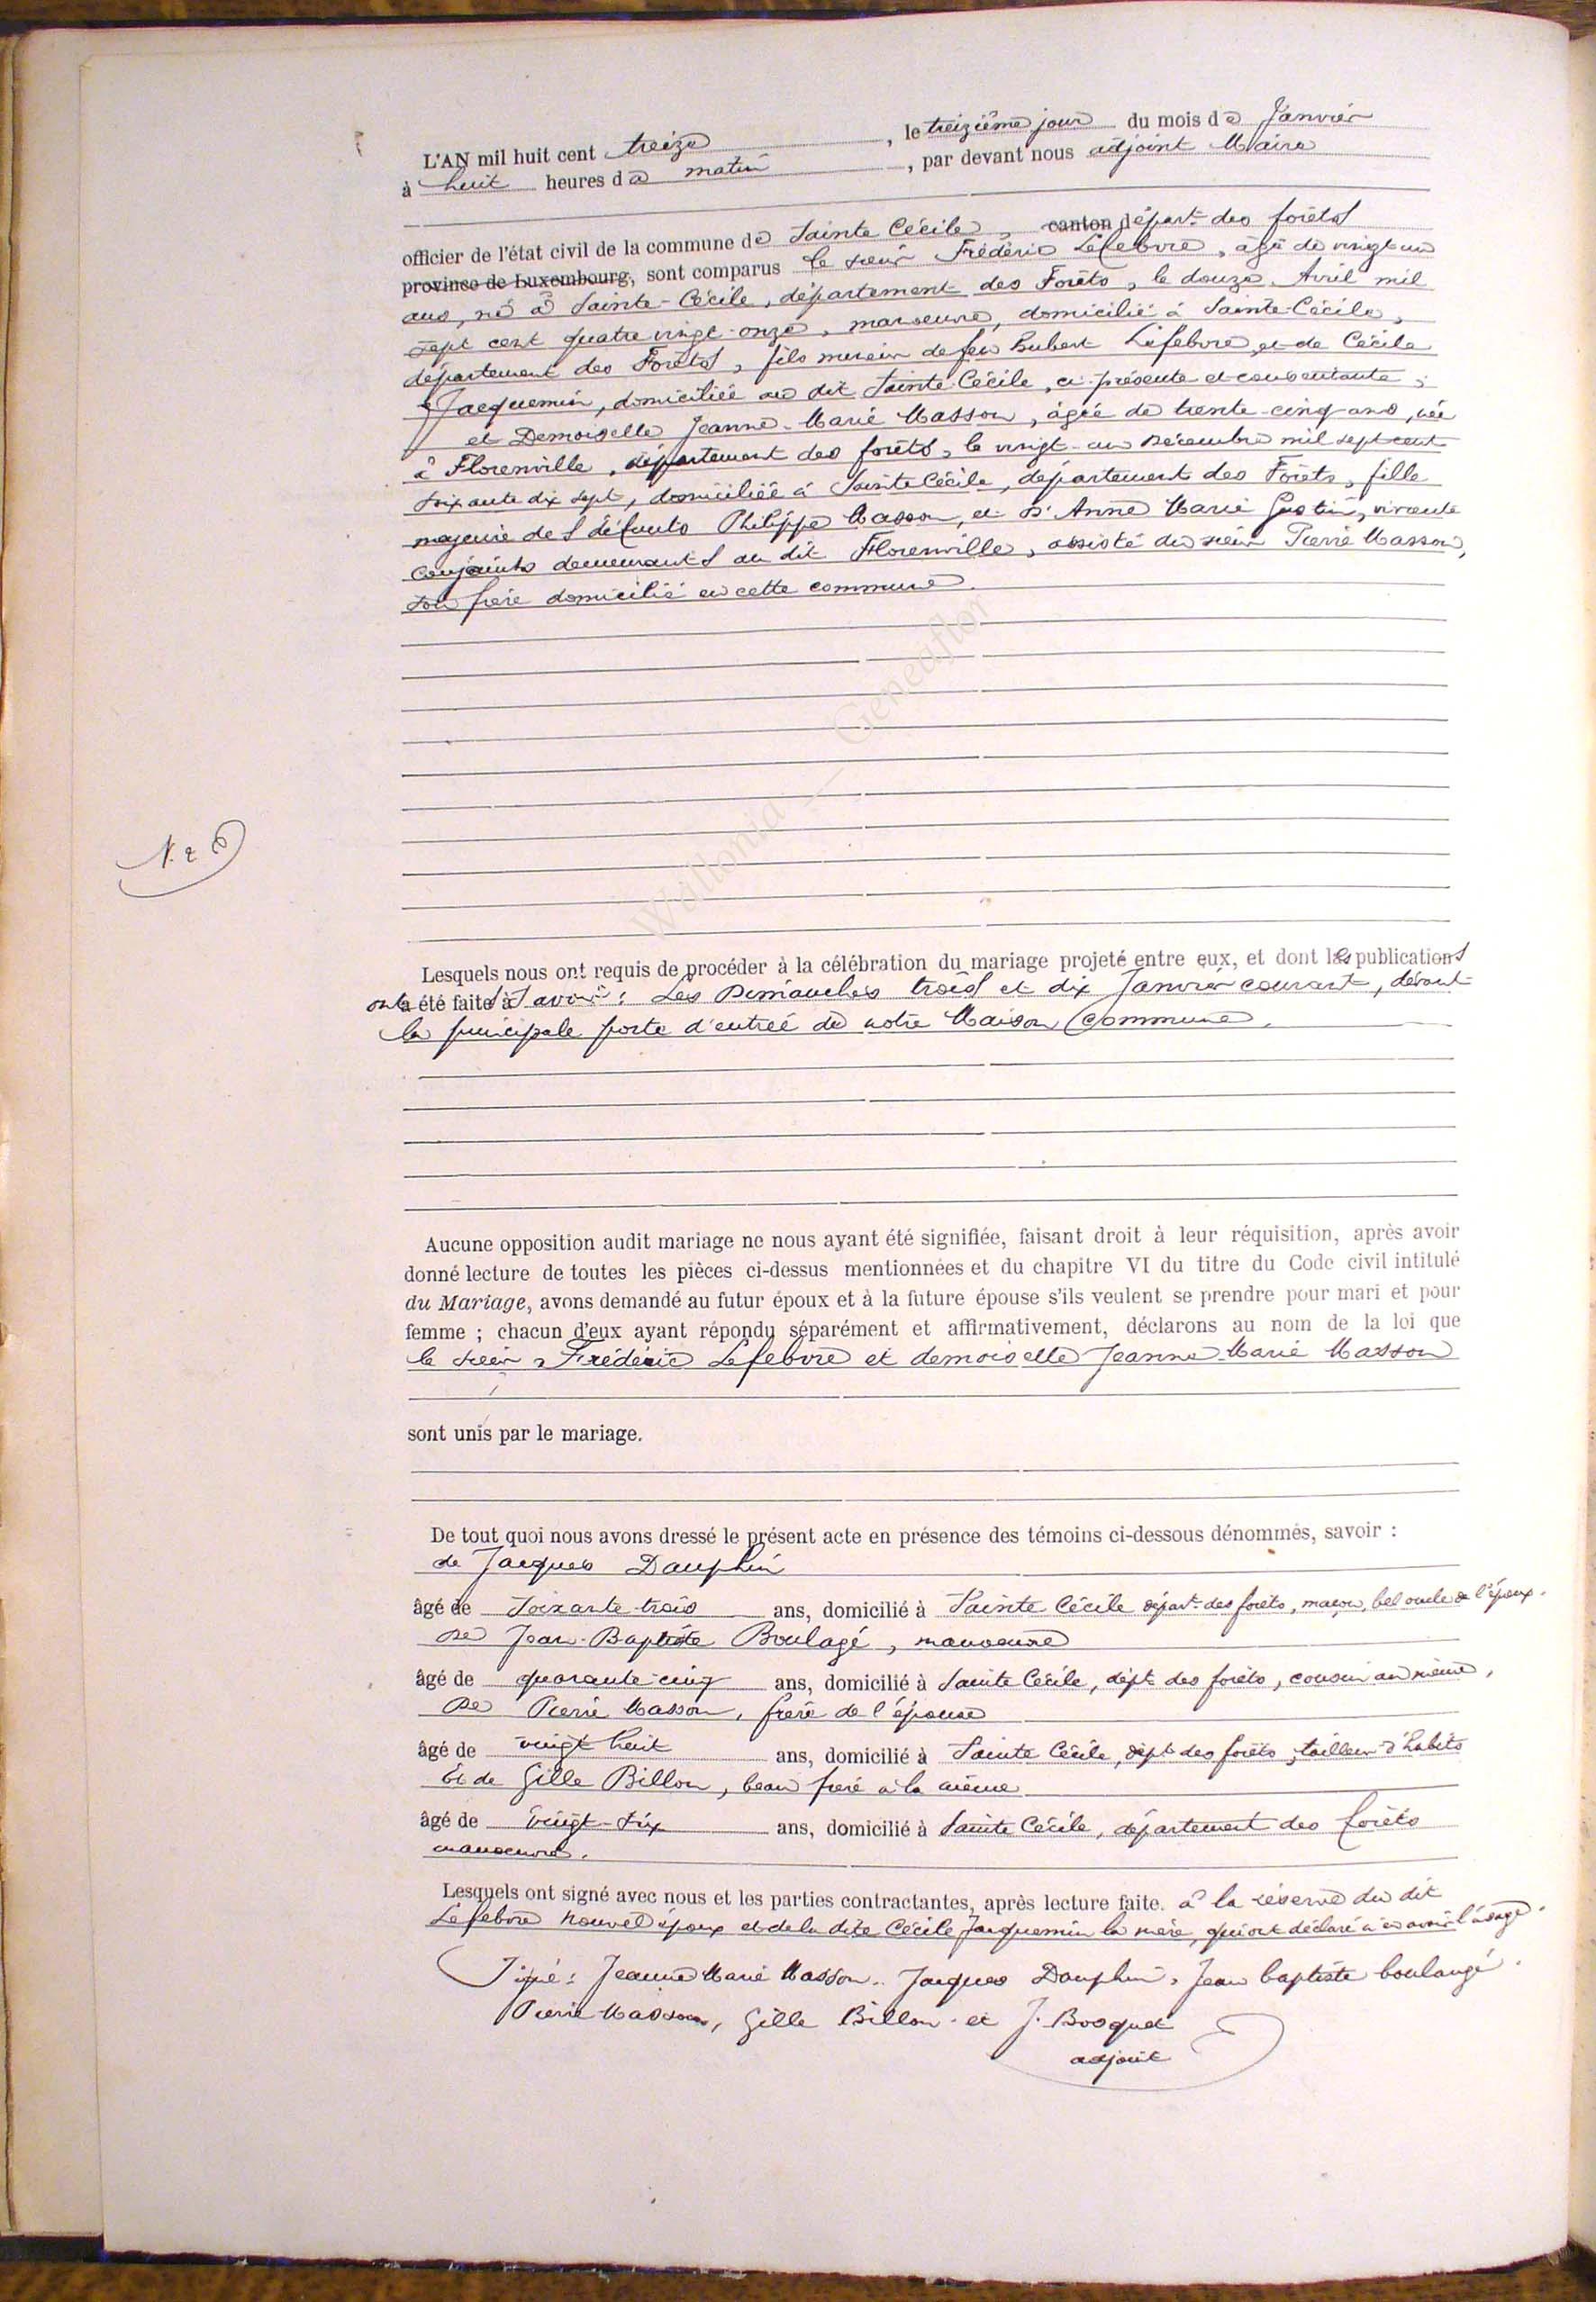 L'AN mil huit cent treize, le treizième jour du mois de Janvier
à huit heures du matin, par devant nous adjoint Maire
officier de l'état civil de la commune de Sainte Cécile, canton départ. des forêts
province de Luxembourg, sont comparus le sieur Frédéric Lefebvre, âgé de vingt un
ans, né à Sainte-Cécile, département des Forêts, le douze Avril mil
sept cent quatre vingt-onze, manoeuvre, domicilié à Sainte-Cécile,
département des Forêts, fils mineur de feu Hubert Lefebvre et de Cécile
Jacquemin, domiciliée au dit Sainte-Cécile, ci-présente et consentante;
et Demoiselle Jeanne-Marie Masson, âgée de trente-cinq ans, née
à Florenville, département des forêts, le vingt-un Décembre mil sept cent
soixante dix sept, domiciliée à Sainte Cécile, département des Forêts, fille
majeure des défunts Philippe Masson, et D. Anne Marie Gustin, vivants
conjoints demeurants au dit Florenville, assisté du sieur Pierre Masson,
son frère domicilié en cette commune.
Wallonia — Geneaflor
N. 2
Lesquels nous ont requis de procéder à la célébration du mariage projeté entre eux, et dont les publications
ont été faites à savoir: Les Dimanches trois et dix Janvier courant, devant
la principale porte d'entrée de notre Maison Commune.
Aucune opposition audit mariage ne nous ayant été signifiée, faisant droit à leur réquisition, après avoir
donné lecture de toutes les pièces ci-dessus mentionnées et du chapitre VI du titre du Code civil intitulé
du Mariage, avons demandé au futur époux et à la future épouse s'ils veulent se prendre pour mari et pour
femme ; chacun d'eux ayant répondu séparément et affirmativement, déclarons au nom de la loi que
le sieur Frédéric Lefebvre et demoiselle Jeanne-Marie Masson
sont unis par le mariage.
De tout quoi nous avons dressé le présent acte en présence des témoins ci-dessous dénommés, savoir :
de Jacques Dauphin
âgé de Soixante-trois ans, domicilié à Sainte Cécile départ. des forêts, maçon, bel oncle de l'époux.
De Jean-Baptiste Boulagé, manoeuvre
âgé de quarante-cinq ans, domicilié à Sainte Cécile, dépt. des forêts, cousin au même,
De Pierre Masson, frère de l'épouse
âgé de vingt huit ans, domicilié à Sainte Cécile, dépt. des forêts, tailleur d'habits
Et de Gille Billon, beau frère à la même
âgé de vingt-six ans, domicilié à Sainte Cécile, département des forêts
manoeuvre.
Lesquels ont signé avec nous et les parties contractantes, après lecture faite. à la réserve du dit
Lefebvre nouvel époux et de la dite Cécile Jacquemin la mère, qui ont déclaré n'en avoir l'usage.
Signé: Jeanne Marie Masson. Jacques Dauphin, Jean baptiste boulangé.
Pierre Masson, Gille Billon et J. Bosquet
adjoint